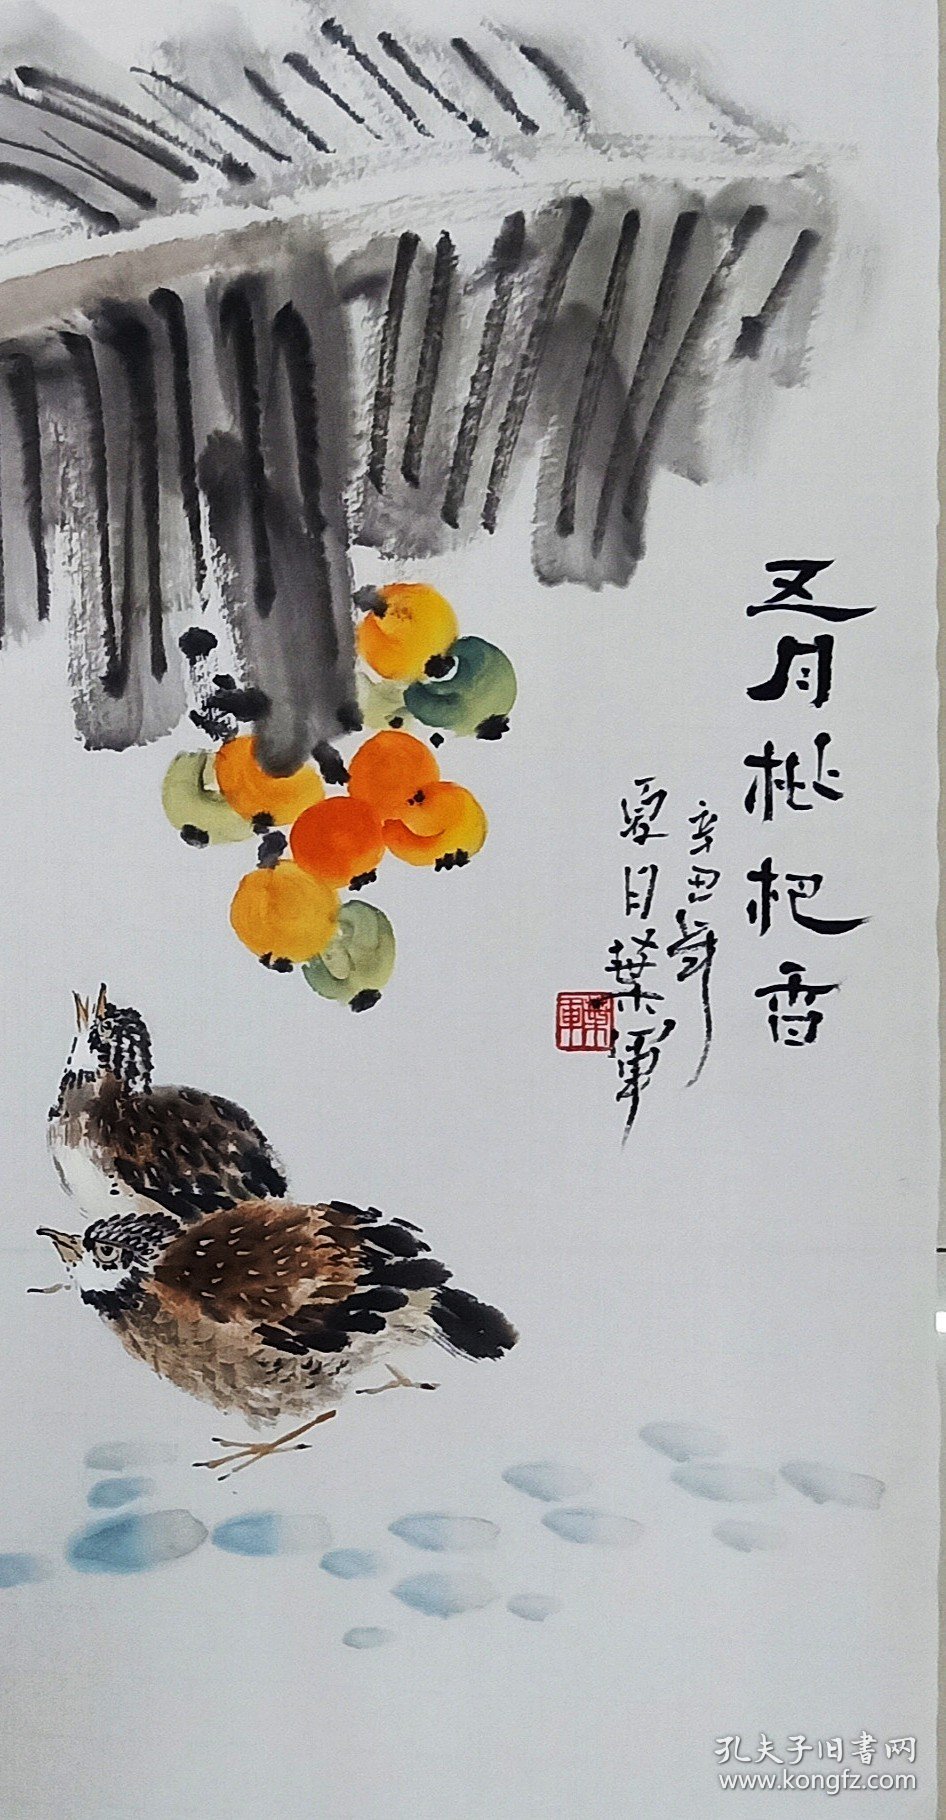 五月枇杷香
辛丑年
夏月葉軍
葉軍
孔夫子旧書网
www.kongfz.com